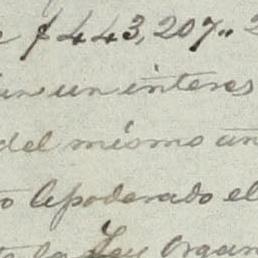 $ 443,207.. 2
un interes
del mismo an
o Apoderado el
la Ley Organ